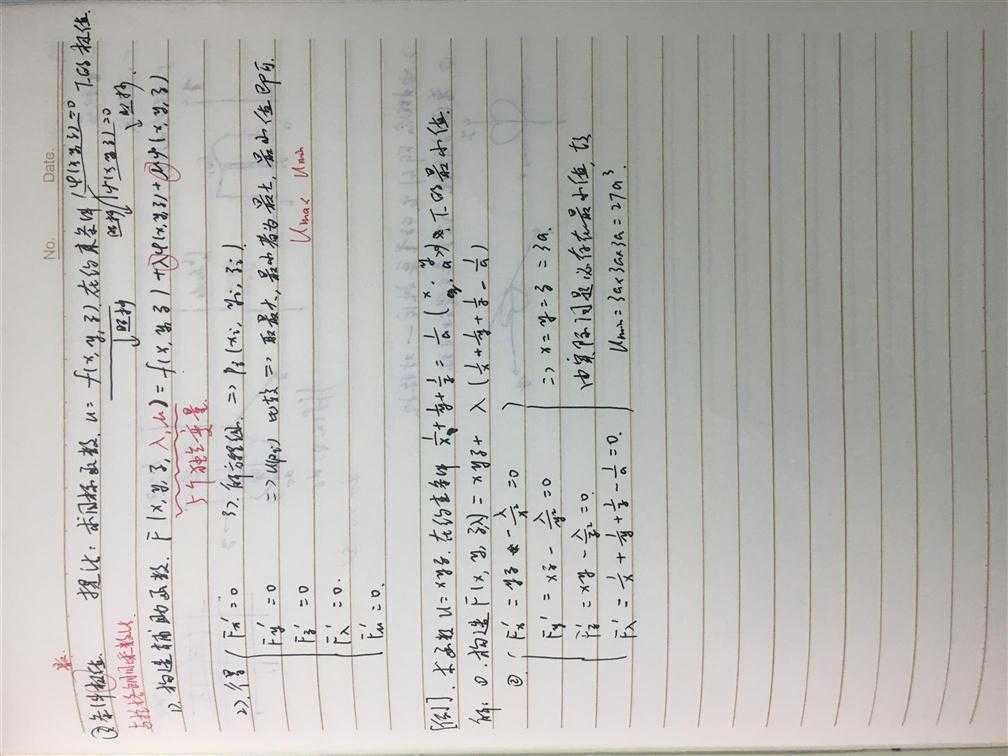 No. Date.
②条件极值. 提法: 求目标函数 u=f(x,y,z) 在约束条件 {φ(x,y,z)=0 ψ(x,y,z)=0 下的极值.
照抄 照抄 照抄
1). 构造辅助函数. F(x,y,z,λ,μ)=f(x,y,z)+λφ(x,y,z)+μψ(x,y,z)
5个独立变量
2). 令 { Fx'=0 Fy'=0 Fz'=0 Fλ'=0. Fμ'=0.
3). 解方程组. => Pi(xi,yi,zi)
=> u(Pi) 比较 => 取最大, 最小者为最大, 最小值即可.
Umax Umin
[例]. 求函数 u=xyz. 在约束条件 1/x+1/y+1/z=1/a (x.y.z.a>0) 下的最小值.
解: ①. 构造 F(x,y,z,λ)=xyz+λ(1/x+1/y+1/z-1/a)
② { Fx'=yz-λ/x²=0
Fy'=xz-λ/y²=0
Fz'=xy-λ/z²=0.
Fλ'=1/x+1/y+1/z-1/a=0.
=> x=y=z=3a.
由实际问题必存在最小值, 故
Umin=3a×3a×3a=27a³